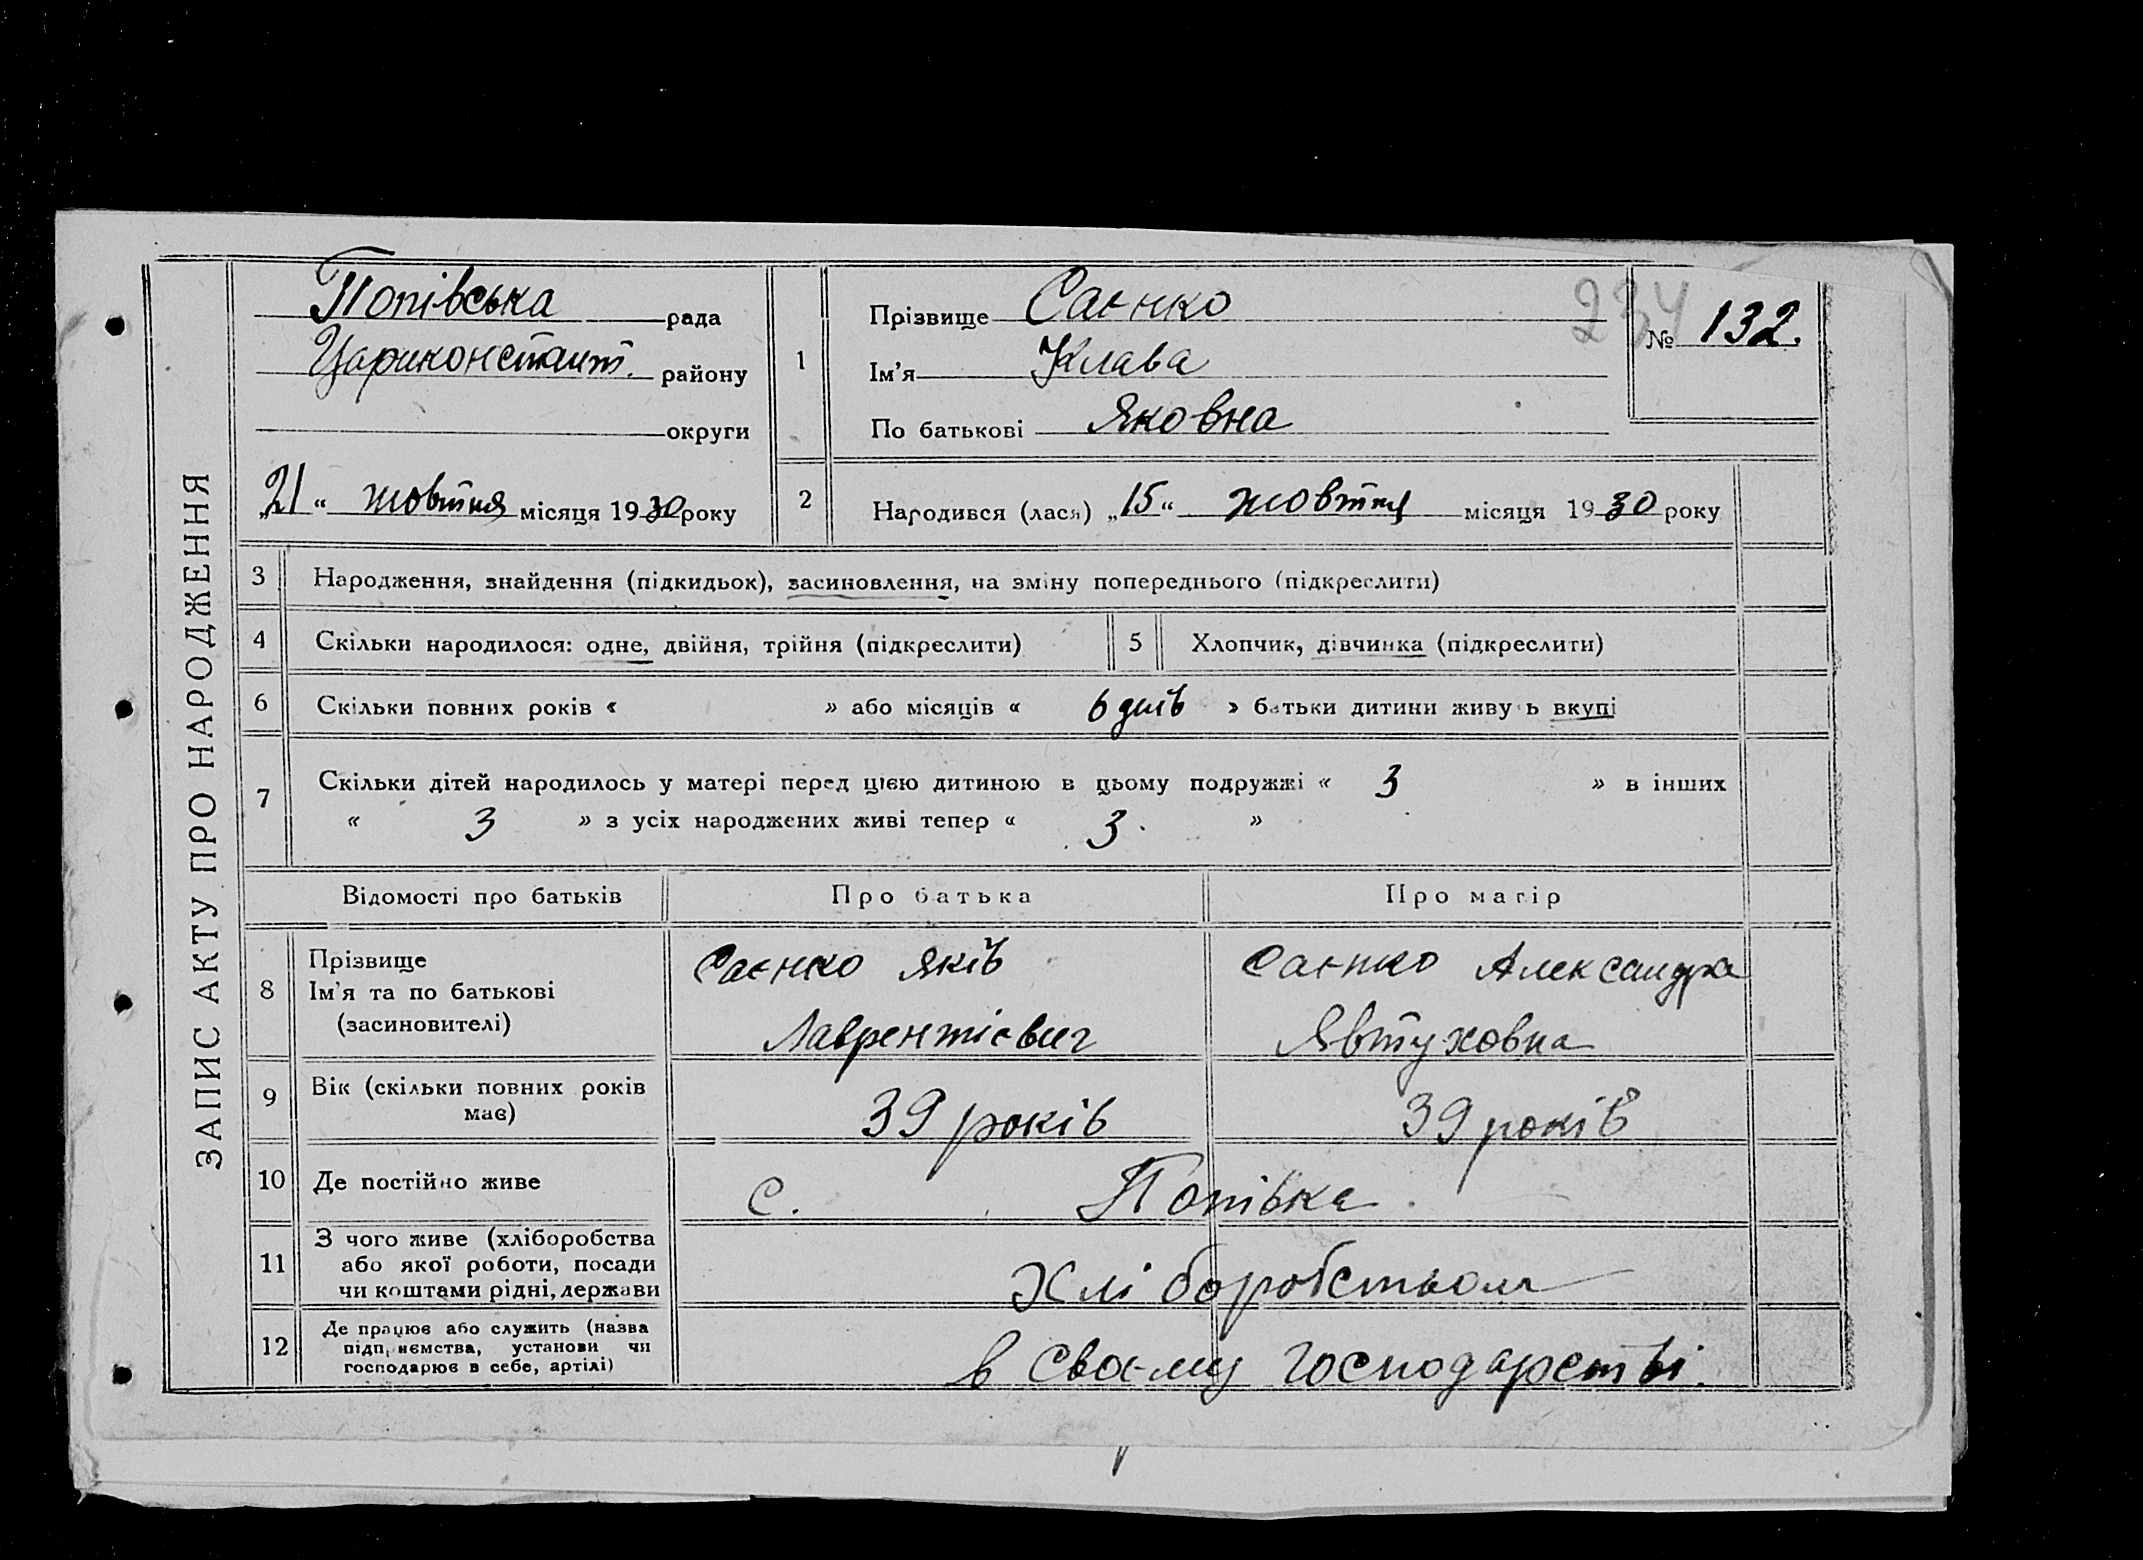 ЗАПИС АКТУ ПРО НАРОДЖЕННЯ
Попівська рада
Цариконстант. району
округи
„21“ жовтня місяця 1930 року
1
Прізвище Саєнко
Ім'я Клава
По батькові Яковна
234
№ 132.
2 Народився (лася) „15“ жовтня місяця 1930 року
3 Народження, знайдення (підкидьок), засиновлення, на зміну попереднього (підкреслити)
4 Скільки народилося: одне, двійня, трійня (підкреслити)
5 Хлопчик, дівчинка (підкреслити)
6 Скільки повних років « » або місяців « 6 днів » батьки дитини живуть вкупі
7 Скільки дітей народилось у матері перед цією дитиною в цьому подружжі « 3 » в інших
« 3 » з усіх народжених живі тепер « 3. »
Відомості про батьків Про батька Про матір
8 Прізвище
Ім'я та по батькові
(засиновителі)
Саєнко Яків
Лаврентієвич
Саєнко Александра
Явтуховна
9 Вік (скільки повних років
має)
39 років
39 років
10 Де постійно живе
с. Попівка.
11 З чого живе (хліборобства
або якої роботи, посади
чи коштами рідні, держави
Хліборобством
12 Де працює або служить (назва
підприємства, установи чи
господарює в себе, артілі)
в своєму господарстві.